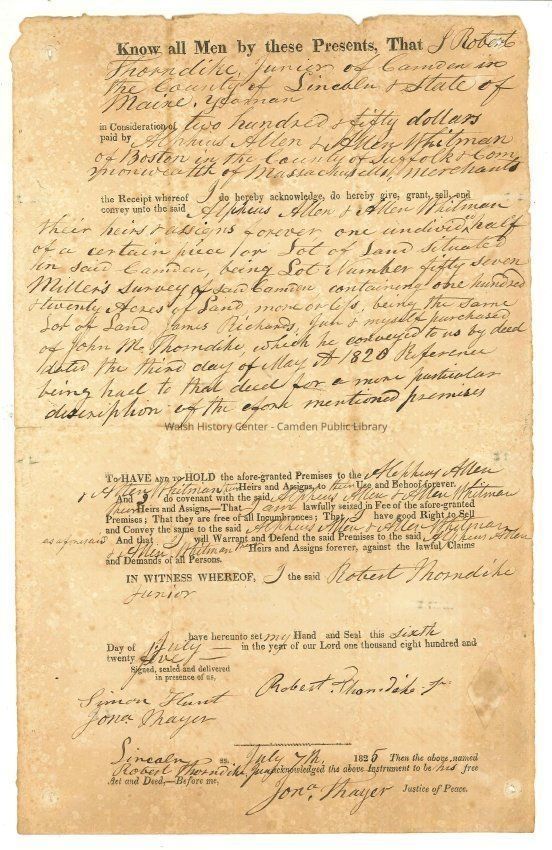 Know all Men by these Presents, That I Robert
Thorndike, Junior of Camden in
the County of Lincoln & State of
Maine, Yeoman
in Consideration of two hundred & fifty dollars
paid by Alpheus Allen & Allen Whitman
of Boston in the County of Suffolk & Com
monwealth of Massachusetts, Merchants
the Receipt whereof I do hereby acknowledge, do hereby give, grant, sell, and
convey unto the said Alpheus Allen & Allen Whitman
their heirs & assigns forever one undivided half
of a certain piece or Lot of Land situated
in said Camden, being Lot Number fifty seven
Miller's Survey of said Camden, containing one hundred
& twenty Acres of Land more or less, being the same
Lot of Land James Richards, Jun & myself purchased
of John M. Thorndike, which he conveyed to us by deed
dated the third day of May A 1820 Reference
being had to that deed for a more particular
discription of the afore mentioned premises
Walsh History Center - Camden Public Library
To HAVE AND TO HOLD the afore-granted Premises to the Alpheus Allen
& Allen Whitman their Heirs and Assigns, to their Use and Behoof forever.
And I do covenant with the said Alpheus Allen & Allen Whitman
their Heirs and Assigns,—That I am lawfully seized in Fee of the afore-granted
Premises; That they are free of all Incumbrances; That I have good Right to Sell
and Convey the same to the said Alpheus Allen & Allen Whitman
as aforesaid And that I will Warrant and Defend the said Premises to the said Alpheus Allen
& Allen Whitman Heirs and Assigns forever, against the lawful Claims
and Demands of all Persons.
IN WITNESS WHEREOF, I the said Robert Thorndike
Junior
have hereunto set my Hand and Seal this sixth
Day of July in the year of our Lord one thousand eight hundred and
twenty five
Signed, sealed and delivered
in presence of us,
Robert Thorndike Jr
Simon Hunt
Jona Thayer
Lincoln ss. July 7th, 1825 Then the above named
Robert Thorndike, Jun acknowledged the above Instrument to be his free
Act and Deed,—Before me,
Jona Thayer Justice of Peace.